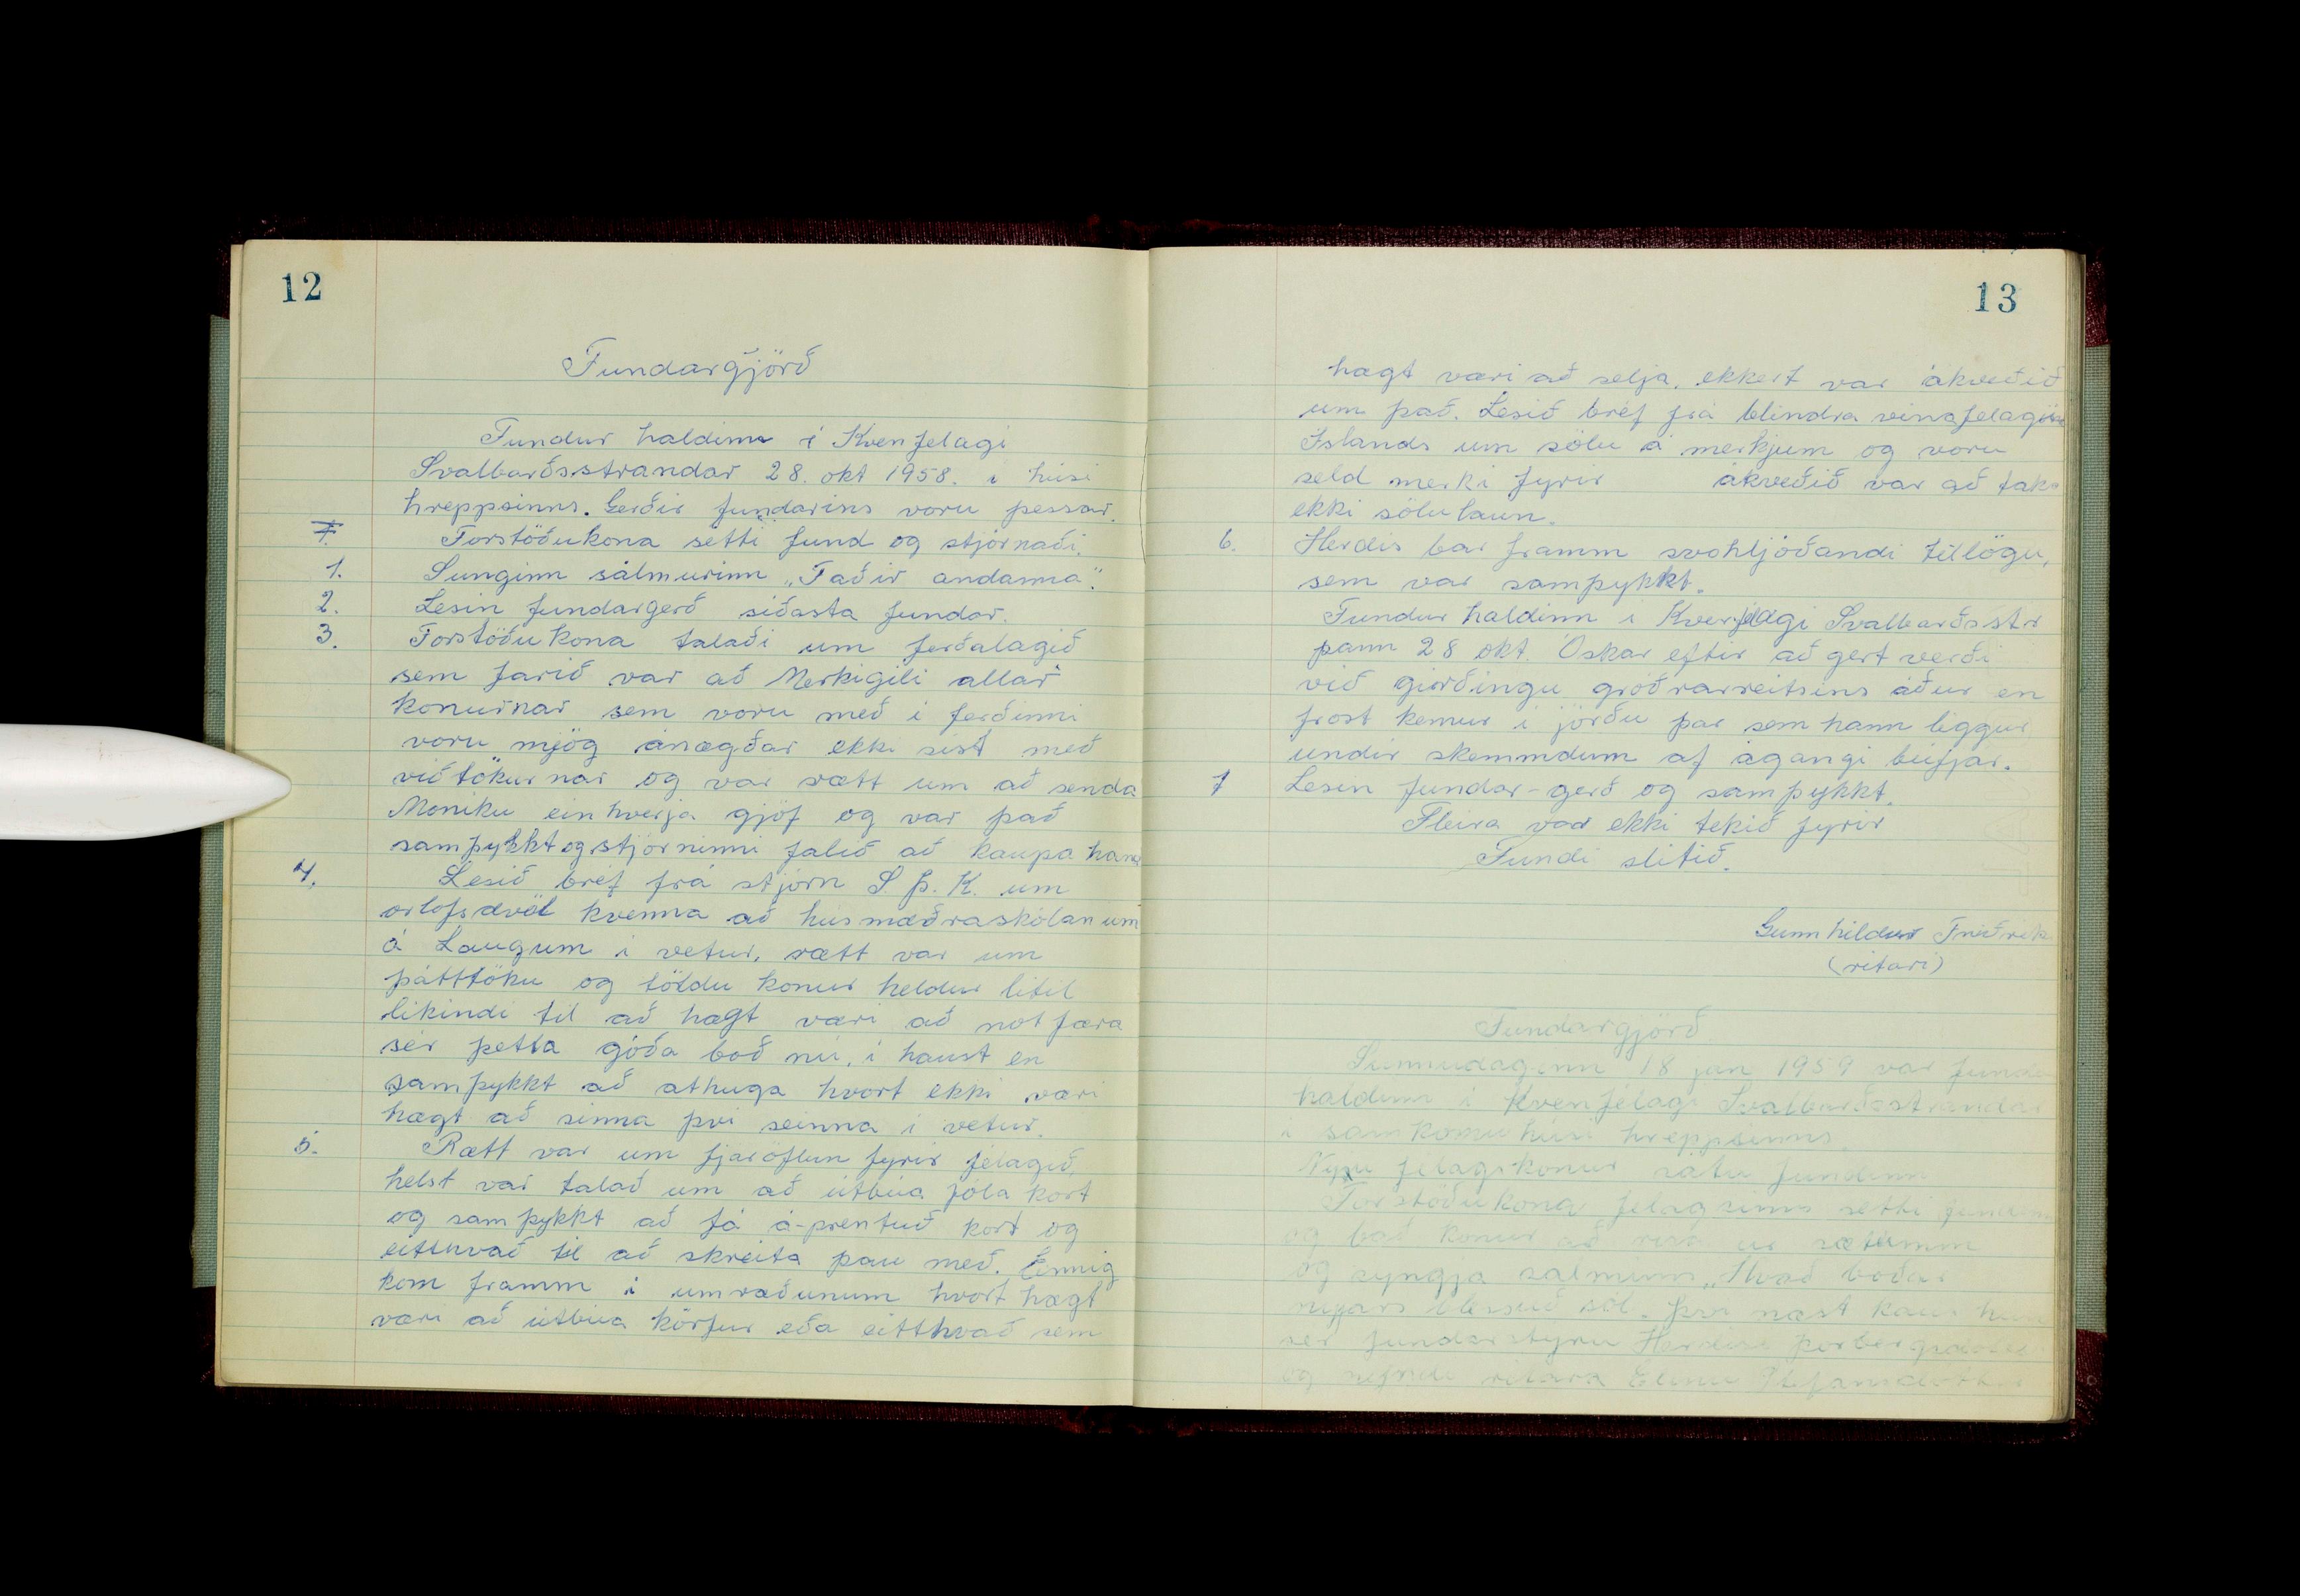 12
Fundargjörð
Fundur haldinn í Kvenfelagi
Svalbarðsstrandar 28. okt 1958. í húsi
hreppsinns. Gerðir fundarins voru þessar.
1. Forstöðukona setti fund og stjórnaði.
1. Sunginn sálmurinn „Faðir andanna".
2. Lesin fundargerð síðasta fundar.
3. Forstöðukona talaði um ferðalagið
sem farið var að Merkigili allar
konurnar sem voru með í ferðinni
voru mjög ánægðar ekki síst með
viðtökurnar og var rætt um að senda
Moniku einhverja gjöf og var það
samþykkt og stjórninni falið að kaupa hana
4. Lesið bréf frá stjórn S.Þ.K. um
orlofsdvöl kvenna að húsmæðraskólanum
á Laugum í vetur, rætt var um
þátttöku og töldu konur heldur lítil
líkindi til að hægt væri að notfæra
sér þetta góða boð nú, í haust en
samþykkt að athuga hvort ekki væri
hægt að sinna því seinna í vetur.
5. Rætt var um fjáröflun fyrir félagið,
helst var talað um að útbúa jóla kort
og samþykkt að fá á-prentuð kort og
eitthvað til að skreita þau með. Einnig
kom framm í umræðunum hvort hægt
væri að útbúa körfur eða eitthvað sem
13
hægt væri að selja, ekkert var ákveðið
um það. Lesið bréf frá blindra vinafelagi
Íslands um sölu á merkjum og voru
seld merki fyrir ákveðið var að taka
ekki sölulaun.
6. Herdís bar framm svohljóðandi tillögu,
sem var samþykkt.
Fundur haldinn í Kvenfélagi Svalbarðsstr
þann 28 okt. Óskar eftir að gert verði
við girðingu gróðrarreitsins áður en
frost kemur í jörðu þar sem hann liggur
undir skemmdum af ágangi búfjár.
7 Lesin fundar-gerð og samþykkt.
Fleira var ekki tekið fyrir
Fundi slitið.
Gunnhildur Friðrik
(ritari)
Fundargjörð
Sunnudaginn 18 jan 1959 var fundur
haldinn í Kvenfélagi Svalbarðsstrandar
í samkomuhúsi hreppsinns.
félagskonur sátu fundinn
Forstöðukona félagsinns setti fundinn
og bað konur að rísa úr sætumm
og syngja sálminn „Hvað boðar
nýjárs blessuð sól. Því næst kaus hún
sér fundarstýru Herdísi Þorbergsdóttur
og ritara Elínu Stefánsdóttur